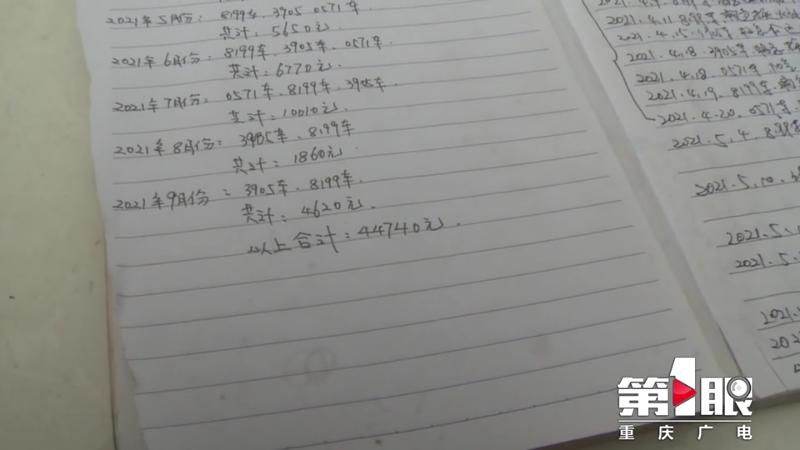 2021年5月份: 8199车、3905、0571车
共计: 5650元.
2021年6月份: 8199车、3905车、0571车
共计: 6770元.
2021年7月份: 0571车、8199车、3905车.
共计: 10010元.
2021年8月份: 3905车、8199车
共计: 1860元.
2021年9月份: 3905车、8199车.
共计: 4620元.
以上合计: 44740元.
2021.4.11.
2021.4.15.
2021.4.18. 3905车
2021.4.18. 0571车
2021.4.19. 8199车
2021.4.20. 0571车
2021.5.4.
2021.5.10.
2021.5.
2021.5.
2021.
202
第1眼
重庆广电